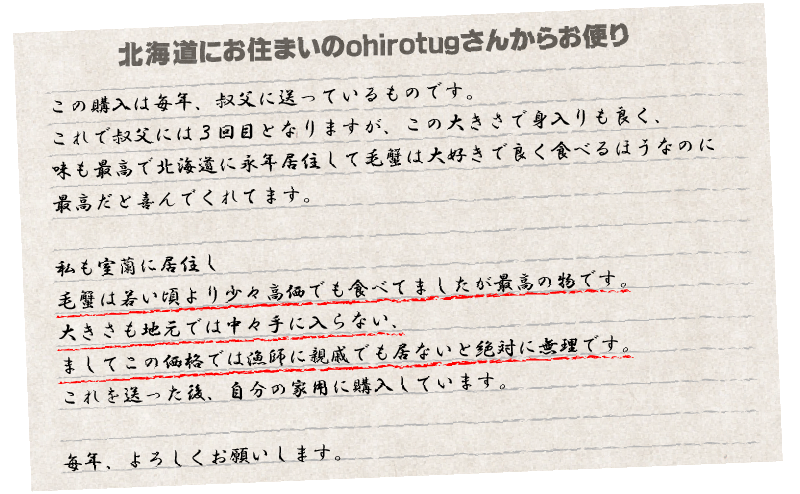 北海道にお住まいのohirotugさんからお便り
この購入は毎年、叔父に送っているものです。
これで叔父には３回目となりますが、この大きさで身入りも良く、
味も最高で北海道に永年居住して毛蟹は大好きで良く食べるほうなのに
最高だと喜んでくれてます。
私も室蘭に居住し
毛蟹は若い頃より少々高価でも食べてましたが最高の物です。
大きさも地元では中々手に入らない、
ましてこの価格では漁師に親戚でも居ないと絶対に無理です。
これを送った後、自分の家用に購入しています。
毎年、よろしくお願いします。